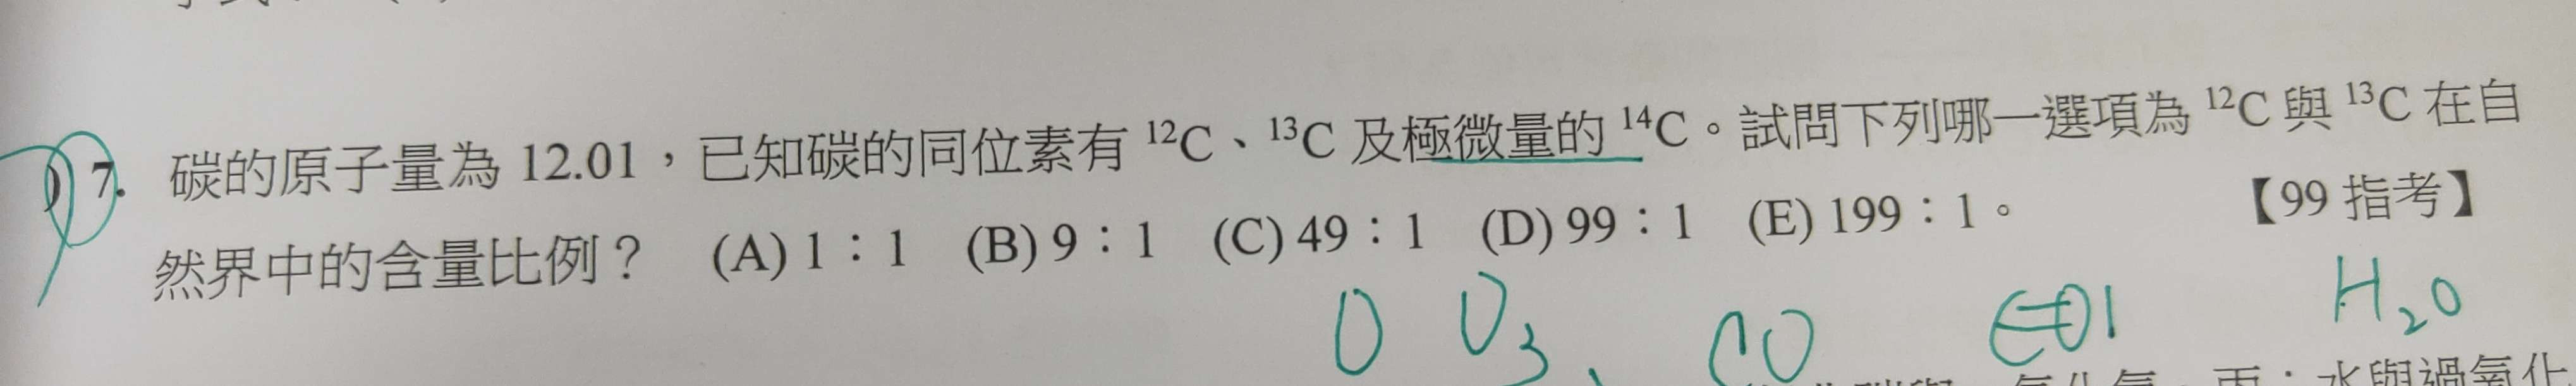 ) 7. 碳的原子量為 12.01，已知碳的同位素有 ¹²C、¹³C 及極微量的 ¹⁴C。試問下列哪一選項為 ¹²C 與 ¹³C 在自
然界中的含量比例？ (A) 1：1 (B) 9：1 (C) 49：1 (D) 99：1 (E) 199：1。 【99 指考】
O O₃ CO H₂O
水與過氧化